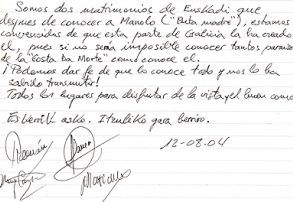 Somos dos matrimonios de Euskadi que
despues de conocer a Manolo ("Puta madre"), estamos
convencidos de que esta parte de Galicia la ha creado
el, pues si no seria imposible conocer tantos, paraiso
de la "Costa da Morte" como conoce el.
¡Podemos dar fe de que lo conoce todo y nos lo ha
sabido transmitir!
Todos los lugares para disfrutar de la vista y el buen comer
Eskerrik asko. Itzuliko gara berriro.
12-08.04